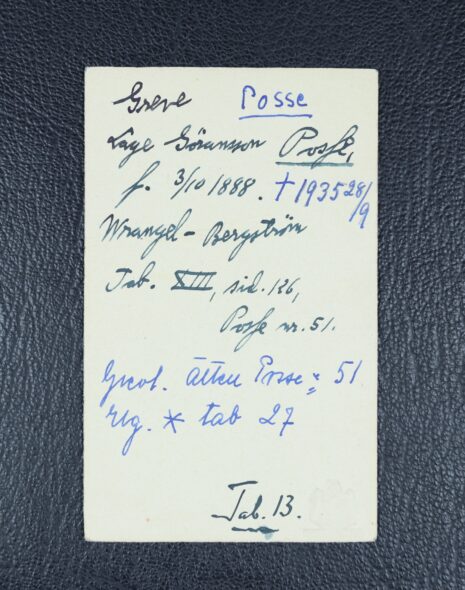 Greve Posse
Lage Göransson Posse,
f. 3/10 1888. † 1935 28/9
Wrangel - Bergström
Tab. XIII, sid. 126,
Posse nr. 51.
ätten Posse: 51
Elg. * tab 27
Tab. 13.